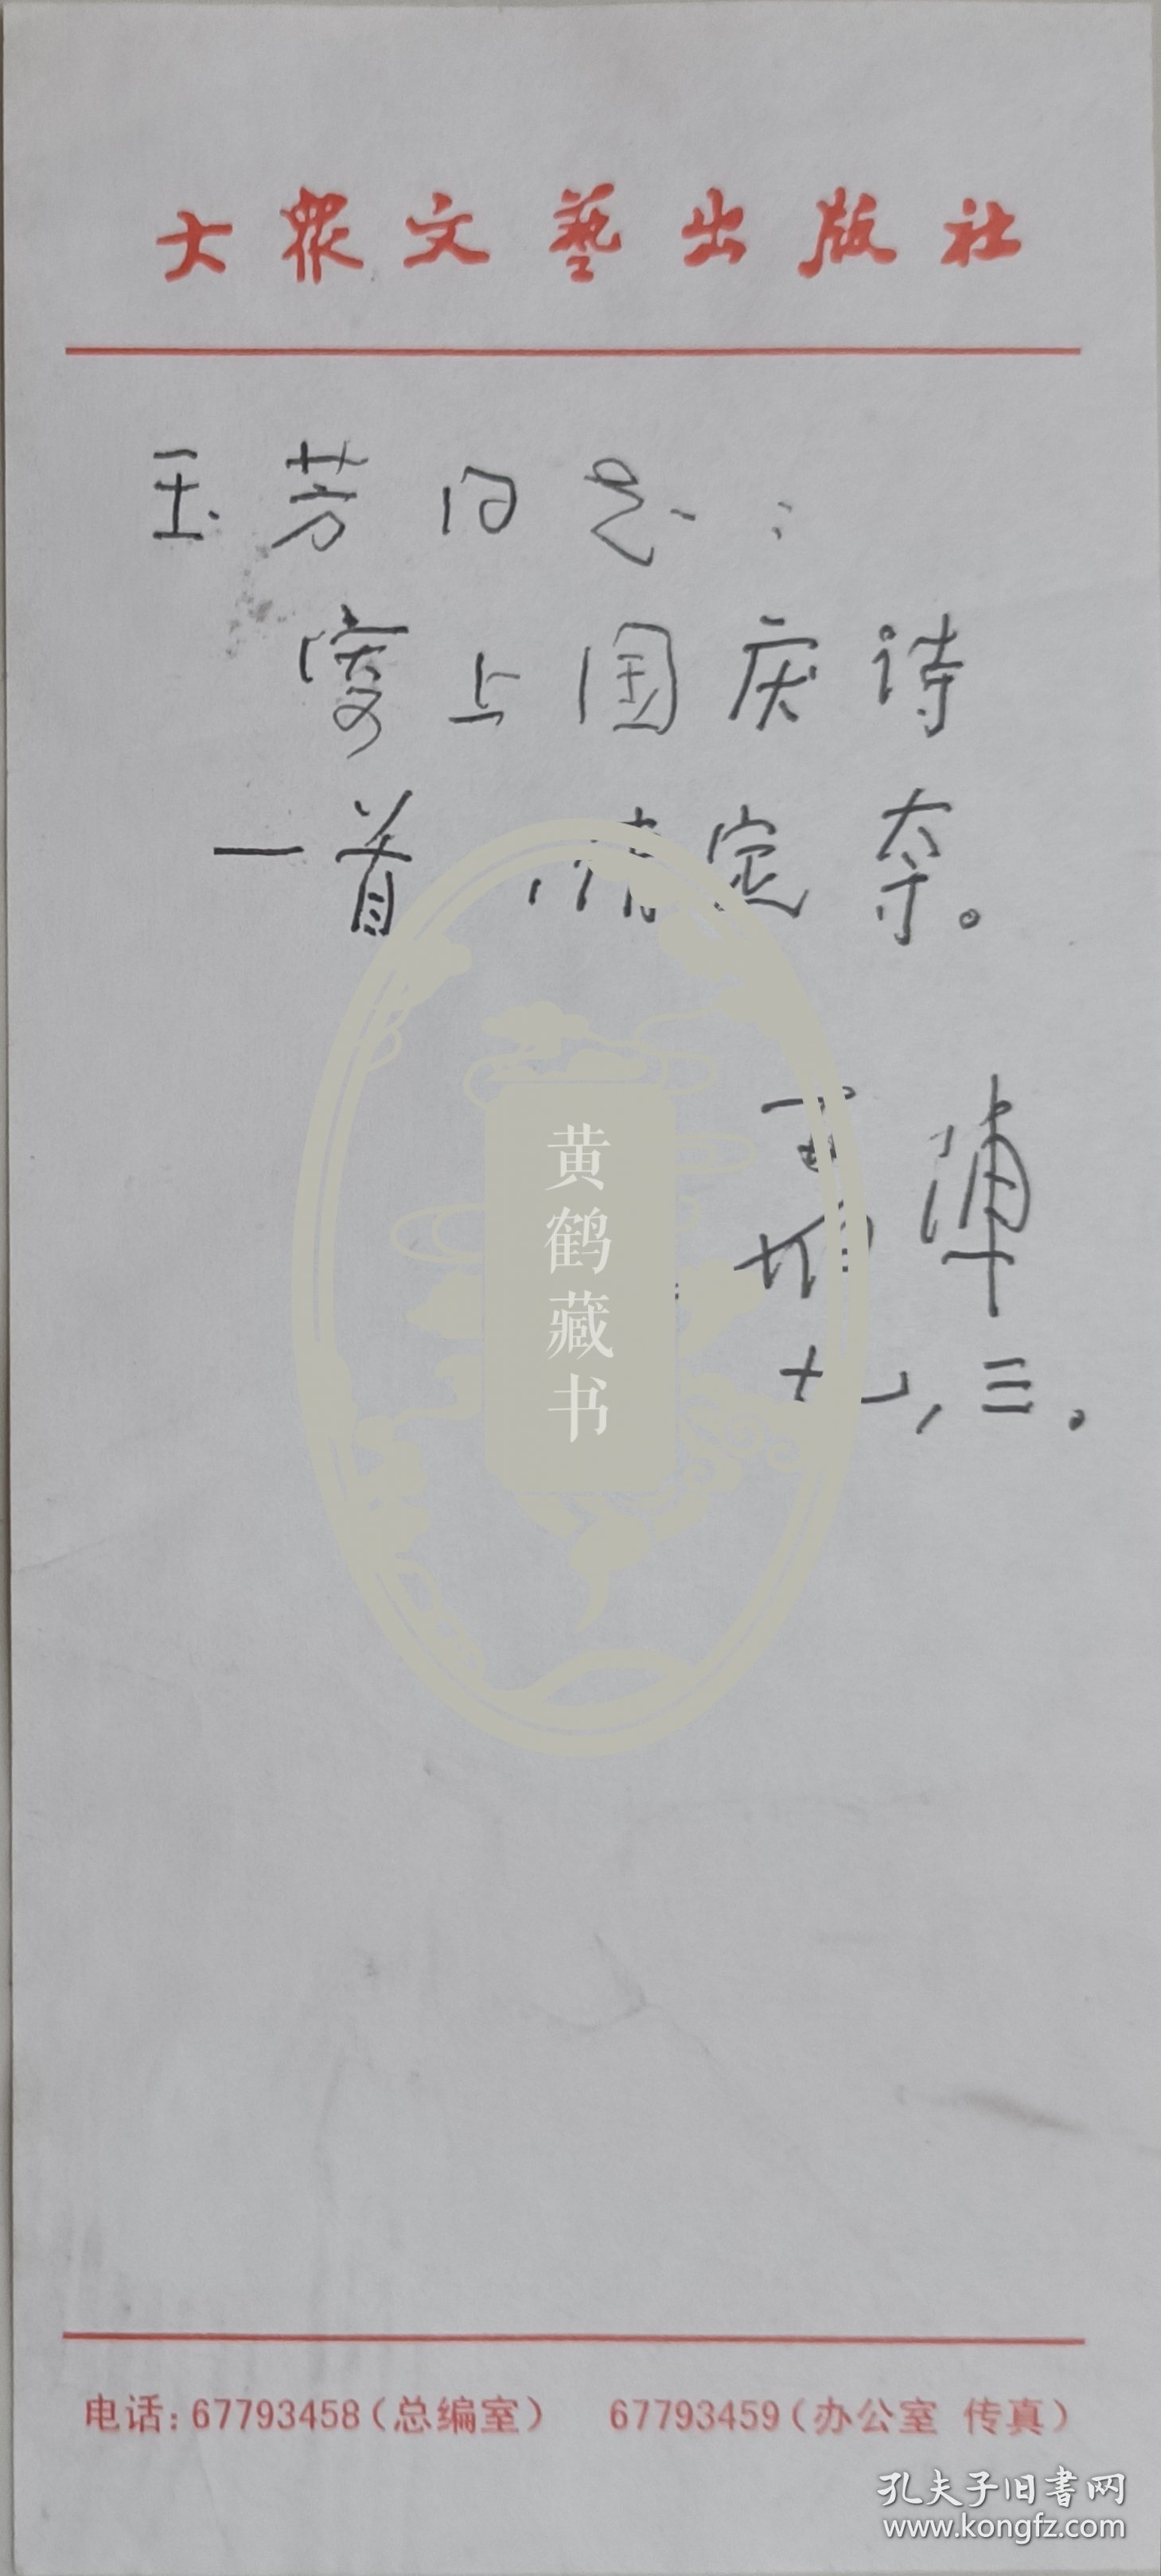 大衆文藝出版社
玉芳同志：
寄上国庆诗
一首，请定夺。
九，三。
黄鹤藏书
电话：67793458（总编室） 67793459（办公室 传真）
孔夫子旧書网
www.kongfz.com